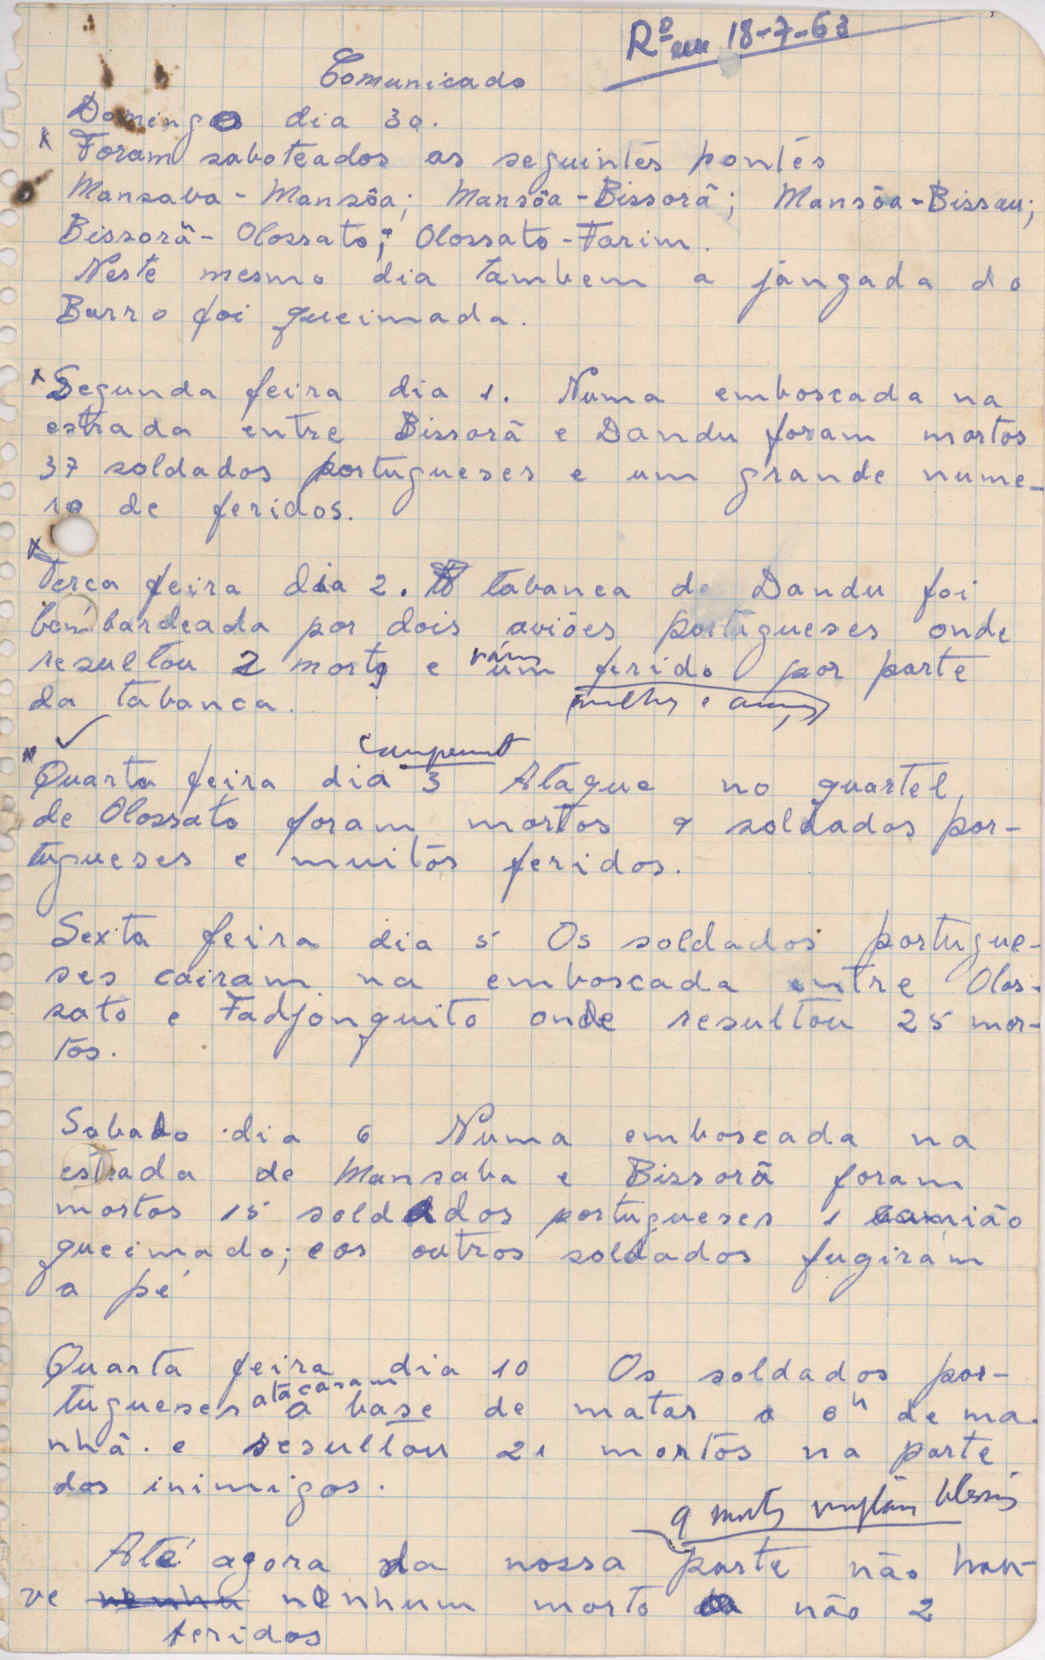 Rº em 18-7-63
Comunicado
Domingo dia 30.
x Foram saboteados as seguintes pontes
Mansaba - Mansôa; Mansôa - Bissorã; Mansôa - Bissau;
Bissorã - Olossato; Olossato - Farim.
Neste mesmo dia tambem a jangada do
Barro foi queimada.
x Segunda feira dia 1. Numa emboscada na
estrada entre Bissorã e Dandu foram mortos
37 soldados portugueses e um grande nume-
ro de feridos.
x Terca feira dia 2. tabanca de Dandu foi
bombardeada por dois aviões portugueses onde
resultou 2 morto e um ferido por parte
da tabanca.
x Quarta feira dia 3 Ataque no quartel
de Olossato foram mortos 9 soldados por-
tugueses e muitos feridos.
Sexta feira dia 5 Os soldados portugue-
ses cairam na emboscada entre Olos-
sato e Fadjonquito onde resultou 25 mor-
tos.
Sabado dia 6 Numa emboscada na
estrada de Mansaba e Bissorã foram
mortos 15 soldados portugueses 1 camião
queimado; e os outros soldados fugiram
a pé
Quarta feira dia 10 Os soldados por-
tugueses atacaram a base de matar a 6h de ma-
nhã. e resultou 21 mortos na parte
dos inimigos.
9 morts
Até agora da nossa parte não hou-
ve nenhum morto não 2
feridos